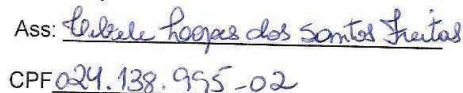 Ass: Cibele Loopes dos Santos Freitas
CPF 024.138.995-02